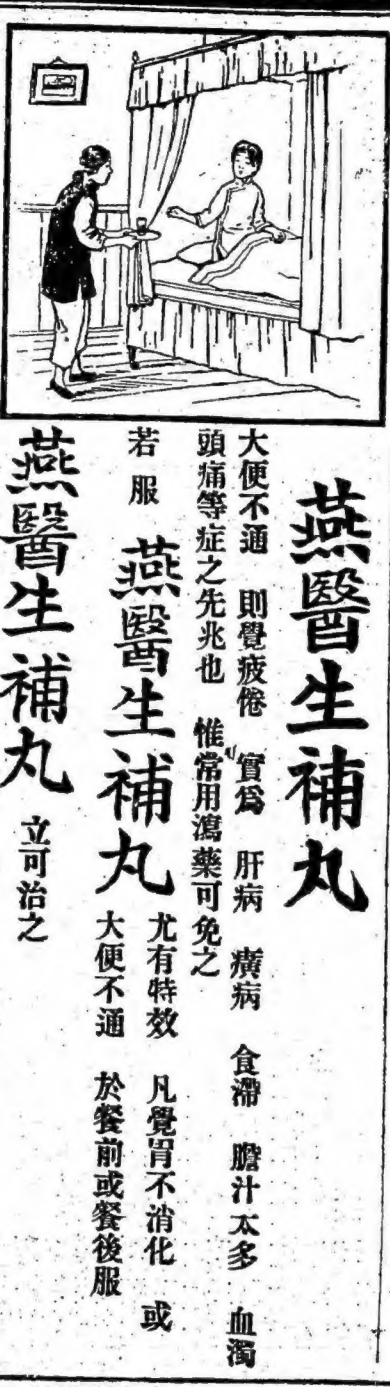 燕醫生補丸
大便不通 則覺疲倦 實爲 肝病 癀病 食滯 膽汁太多 血濁
頭痛等症之先兆也 惟常用瀉藥可免之
若服 燕醫生補丸 尤有特效 凡覺胃不消化 或
大便不通 於餐前或餐後服
燕醫生補丸 立可治之